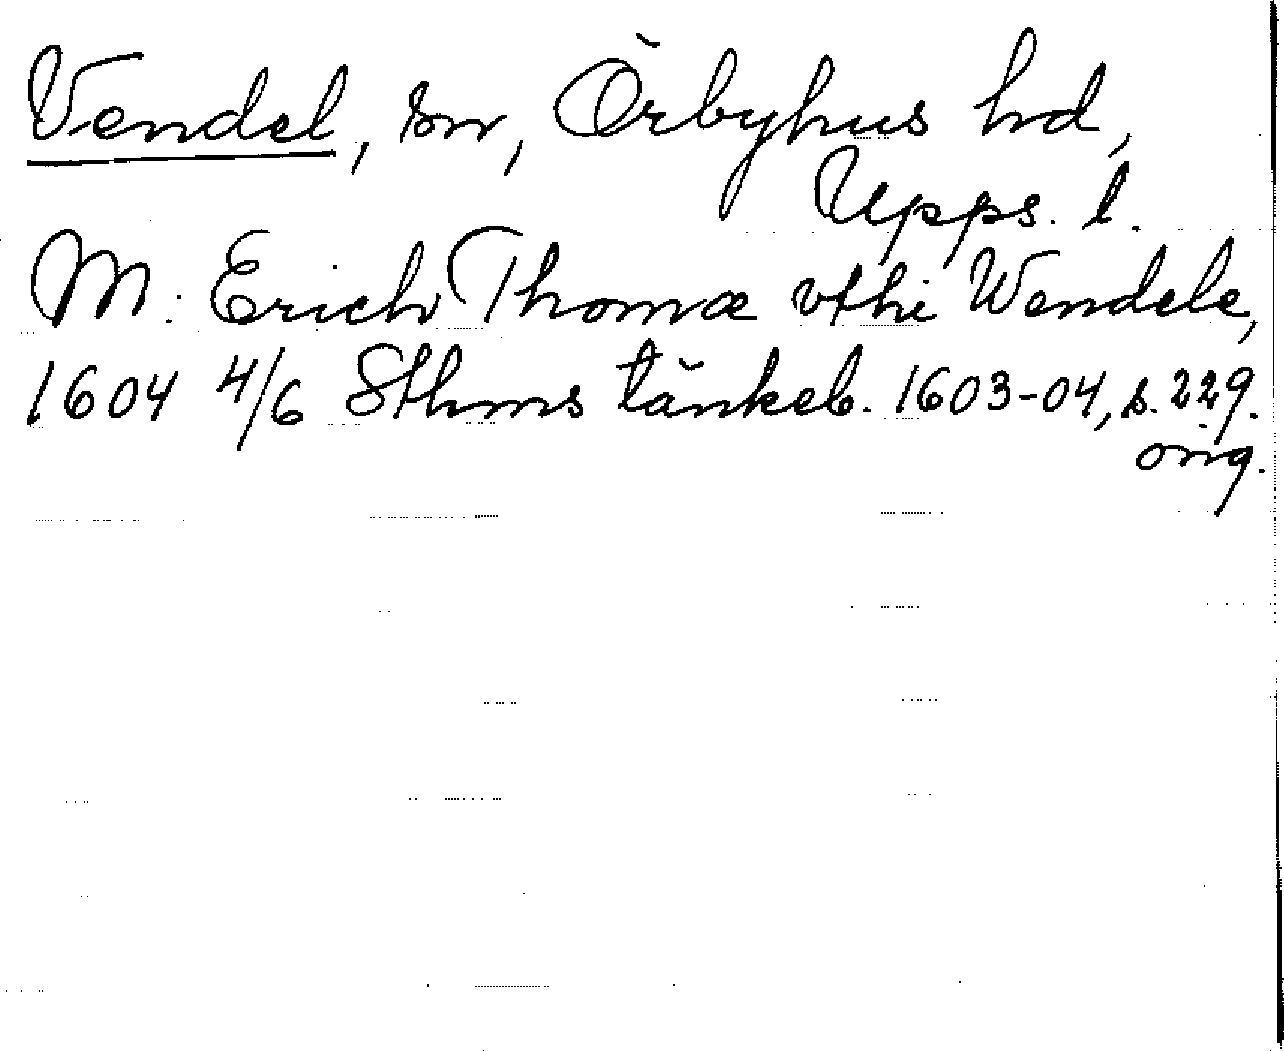 Vendel, sn, Örbyhus hd,
Upps. l.
M: Erich Thomæ vthi Wendele,
1604 4/6 Sthms tänkeb. 1603-04, s. 229.
orig.